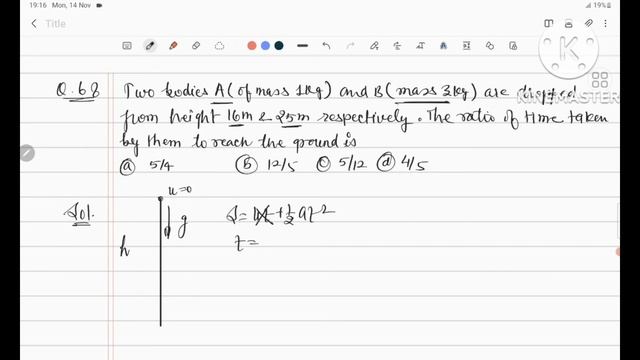 19:16 Mon, 14 Nov
19%
Title
K
KINEMASTER
Q.68 Two bodies A (of mass 1kg) and B (mass 3kg) are dropped
from height 16m & 25m respectively. The ratio of time taken
by them to reach the ground is
(a) 5/4 (b) 12/5 (c) 5/12 (d) 4/5
u=0
Sol. g
h
t =